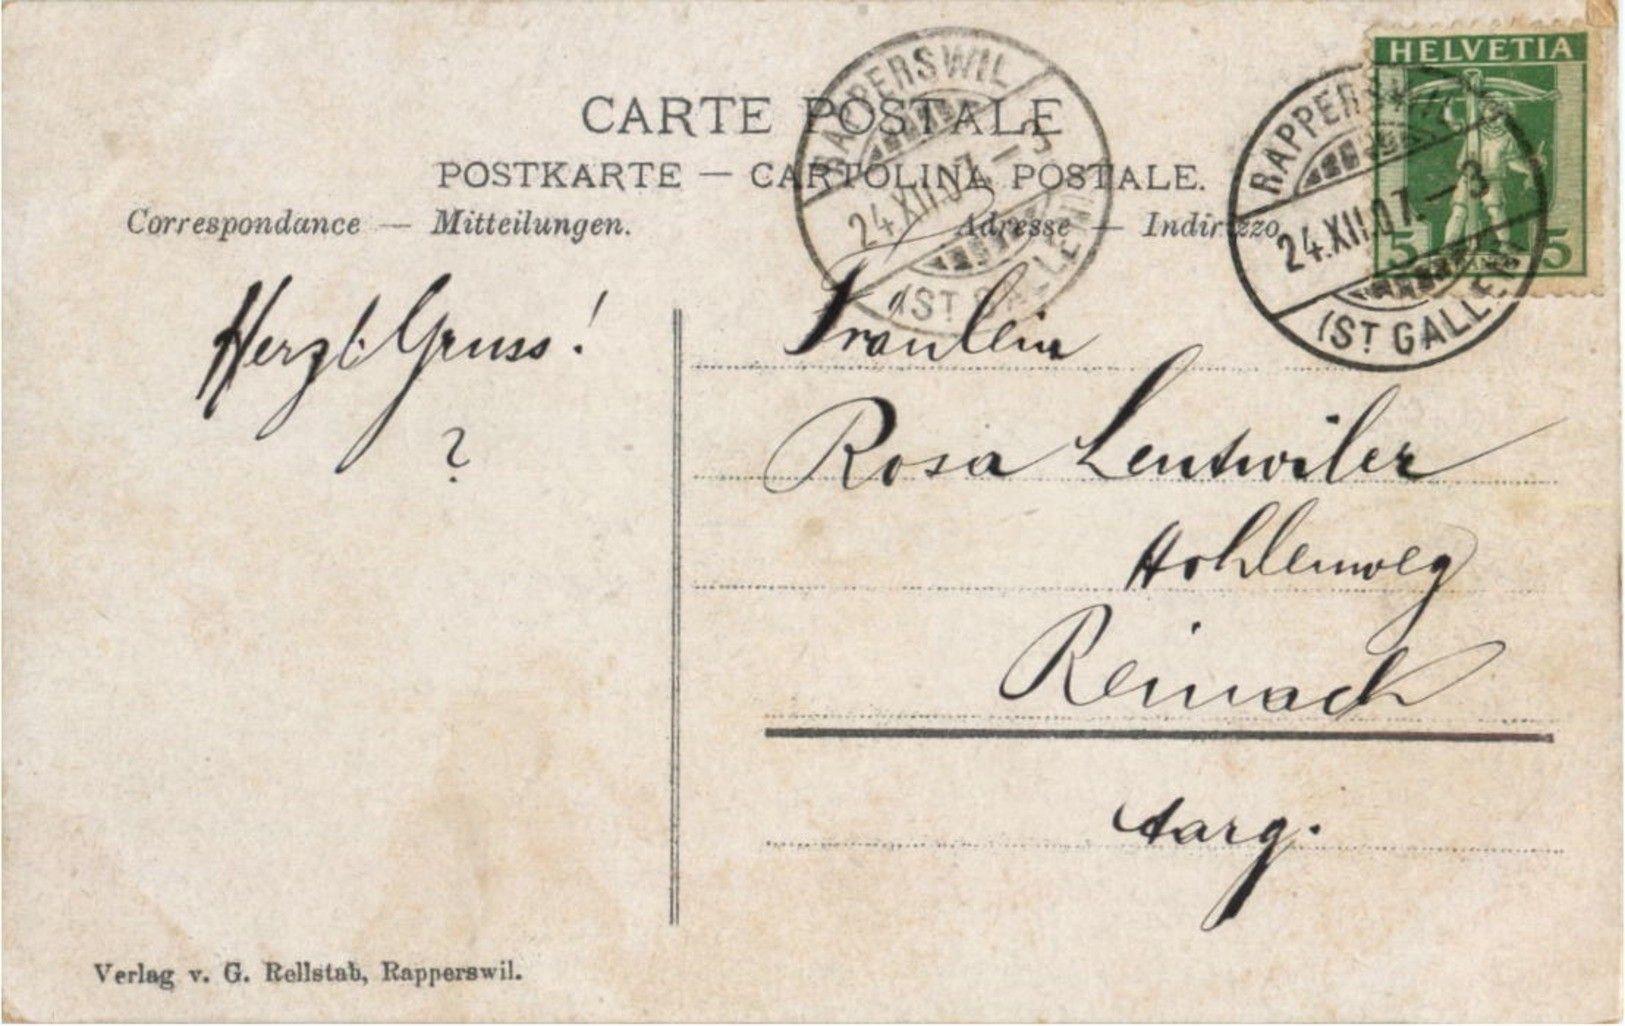 CARTE POSTALE
POSTKARTE — CARTOLINA POSTALE.
Correspondance — Mitteilungen.
Adresse — Indirizzo
RAPPERSWIL
24.XII.07.–3
(ST. GALLEN)
RAPPERSWIL
24.XII.07.–3
(ST. GALLEN)
HELVETIA
5 5
Herzl. Gruss!
?
Fräulein
Rosa Leutwiler
Hohlenweg
Reinach
Aarg.
Verlag v. G. Rellstab, Rapperswil.